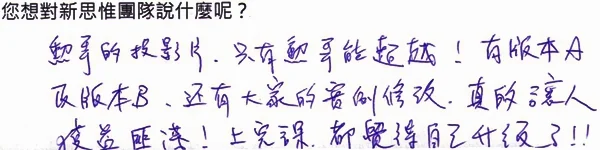 您想對新思惟團隊說什麼呢？
勳哥的投影片，只有勳哥能超越！有版本A
及版本B、還有大家的實例修改，真的讓人
獲益匪淺！上完課，都覺得自己升級了!!